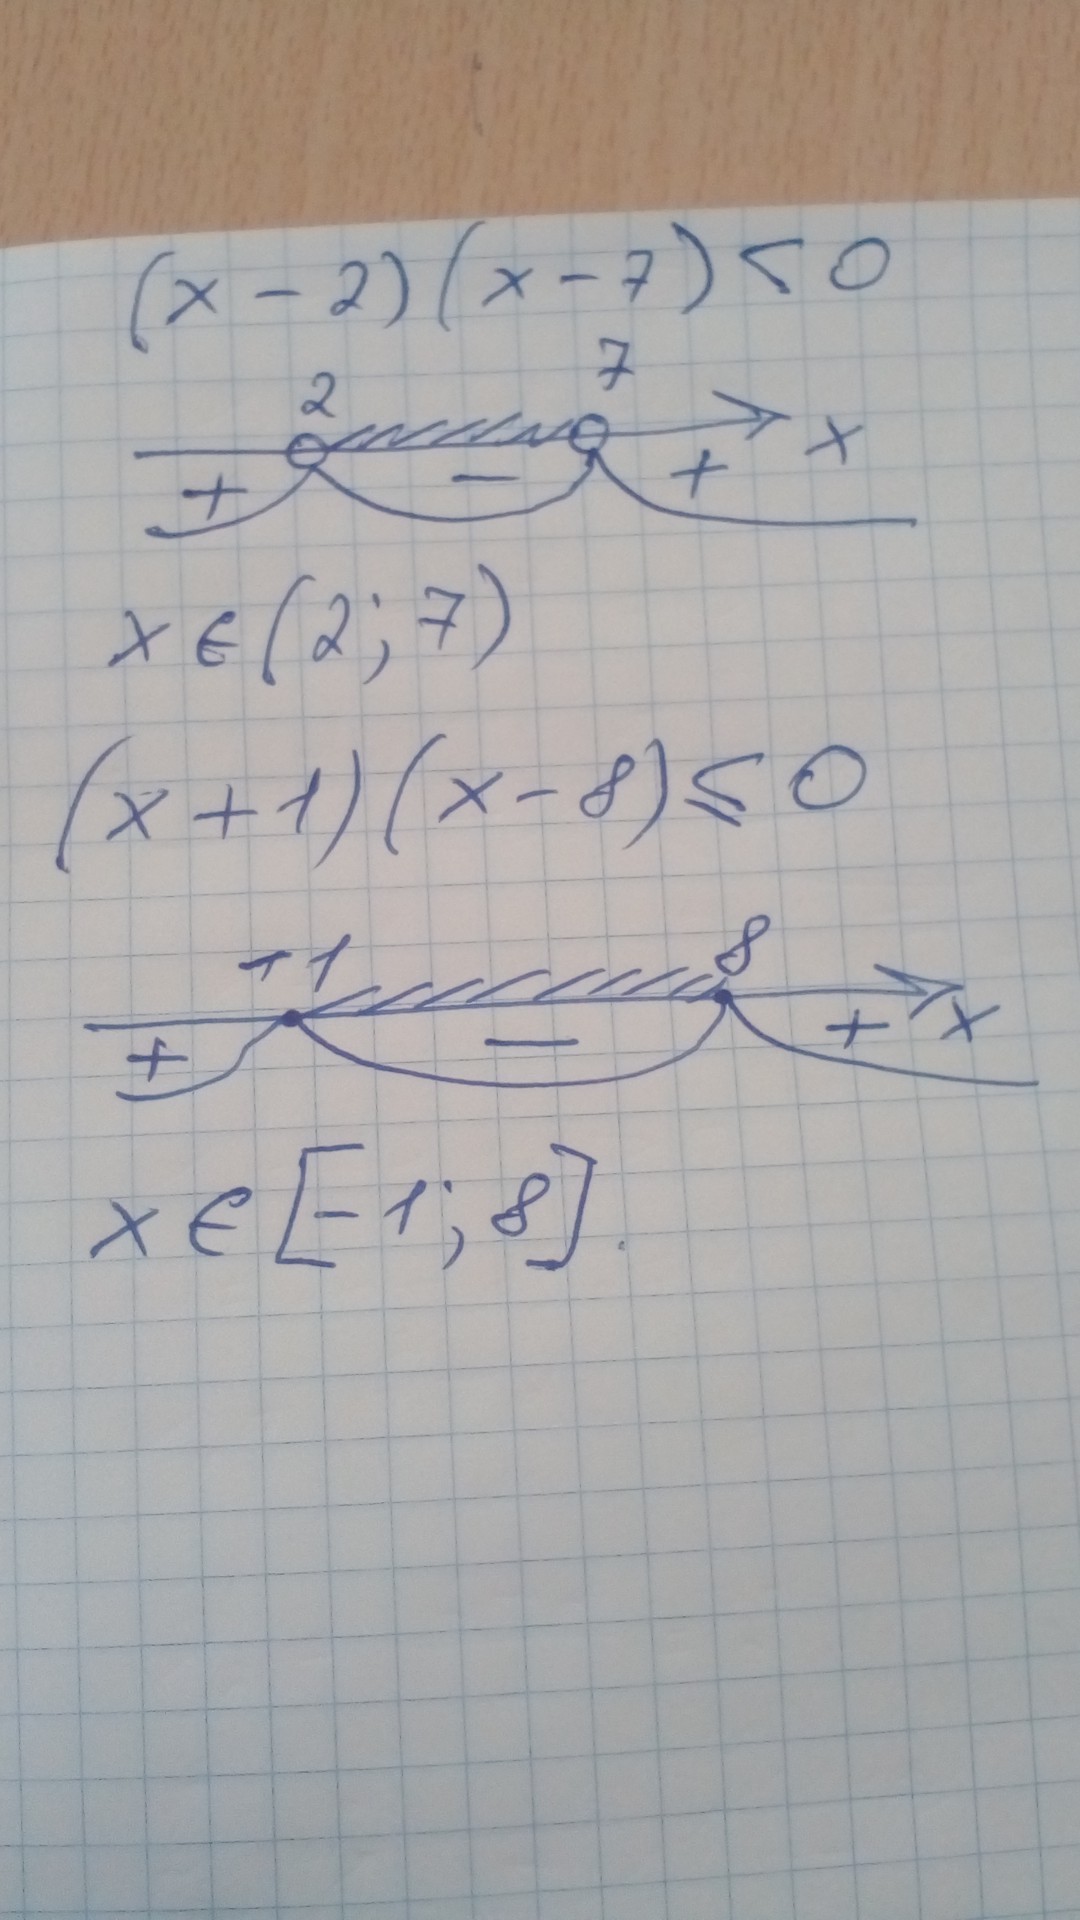 (x - 2)(x - 7) < 0
2 7
+ - + x
x ∈ (2; 7)
(x + 1)(x - 8) ≤ 0
-1 8
+ - + x
x ∈ [-1; 8].